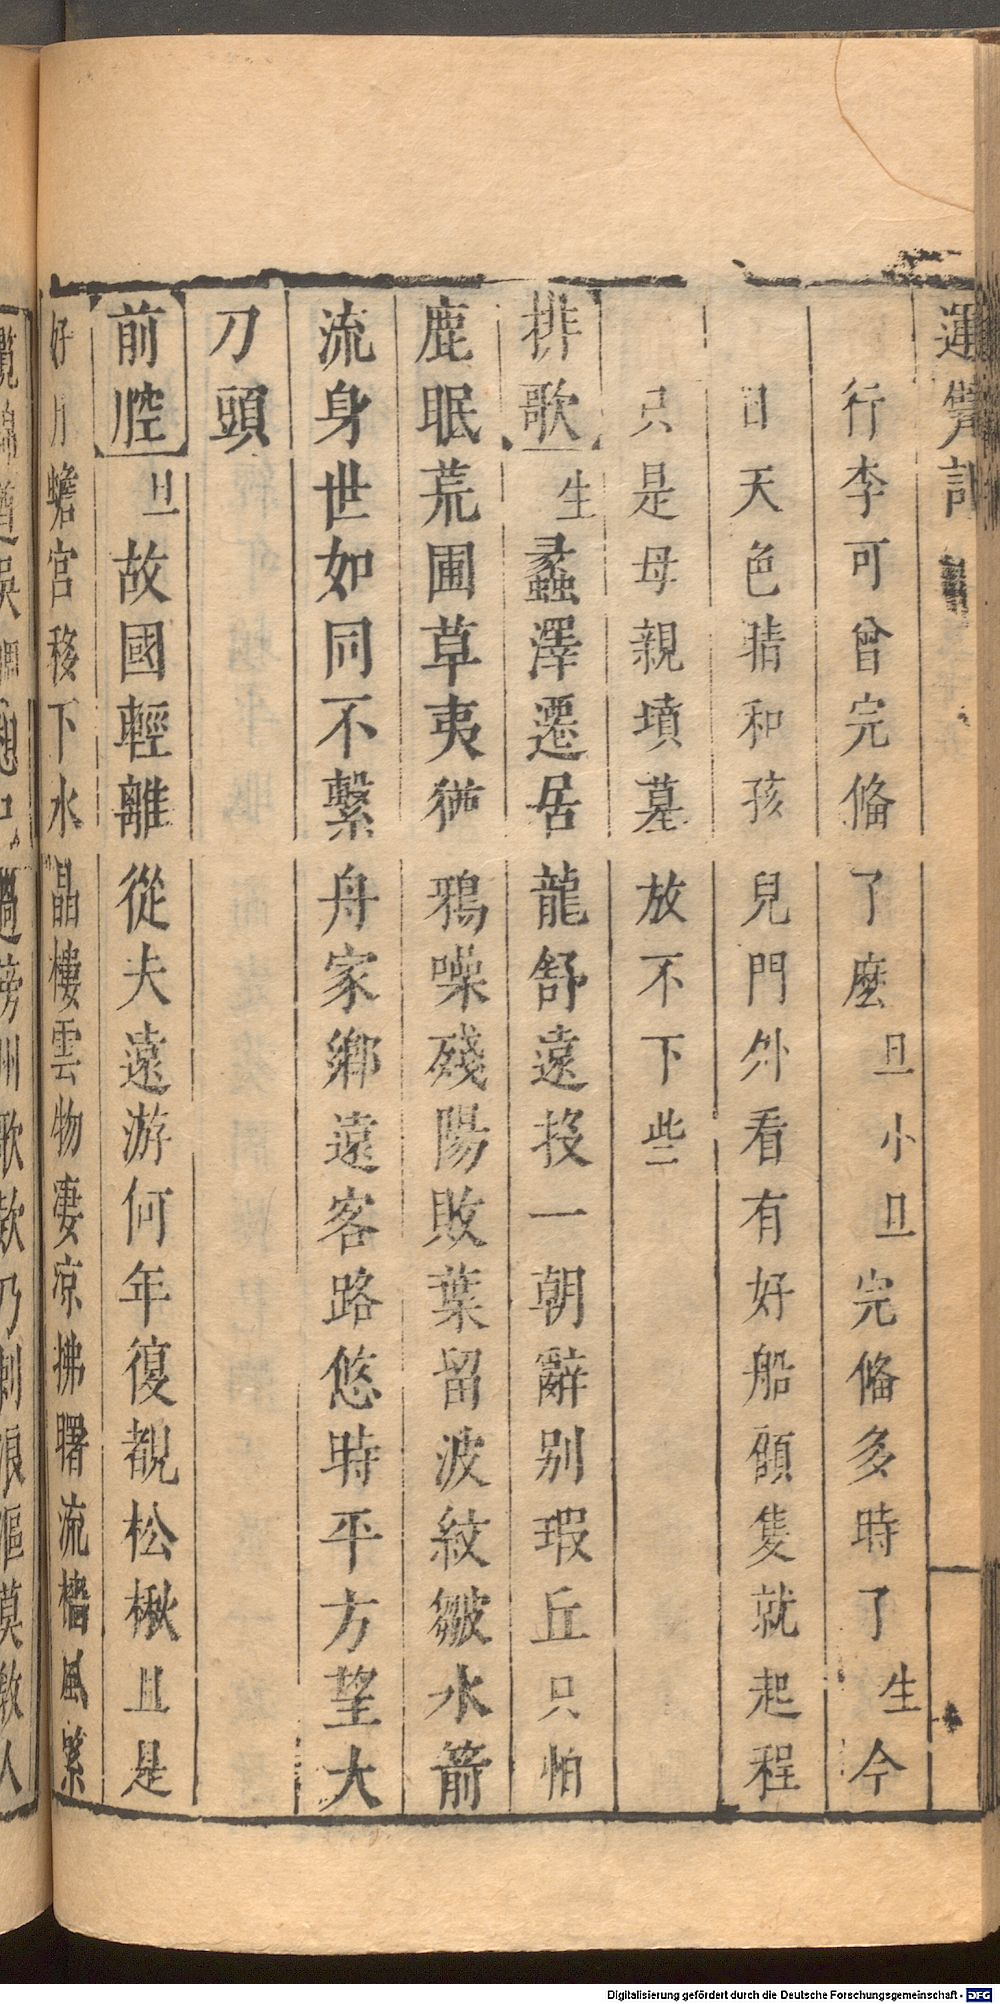 運甓記
行李可曾完偹了麼旦小旦完偹多時了生今
日天色晴和孩兒門外看有好船顧隻就起程
只是母親墳墓放不下些
排歌生蠡澤遷居龍舒遠投一朝辭别瑕丘只怕
鹿眠荒圃草夷猶鴉噪殘陽敗葉留波紋皺水箭
流身世如同不繫舟家鄉遠客路悠時平方望大
刀頭
前腔旦故國輕離從夫遠游何年復覩松楸且是
好月蟾宫移下水晶樓雲物凄凉拂曙流檣風緊
Digitalisierung gefördert durch die Deutsche Forschungsgemeinschaft - DFG